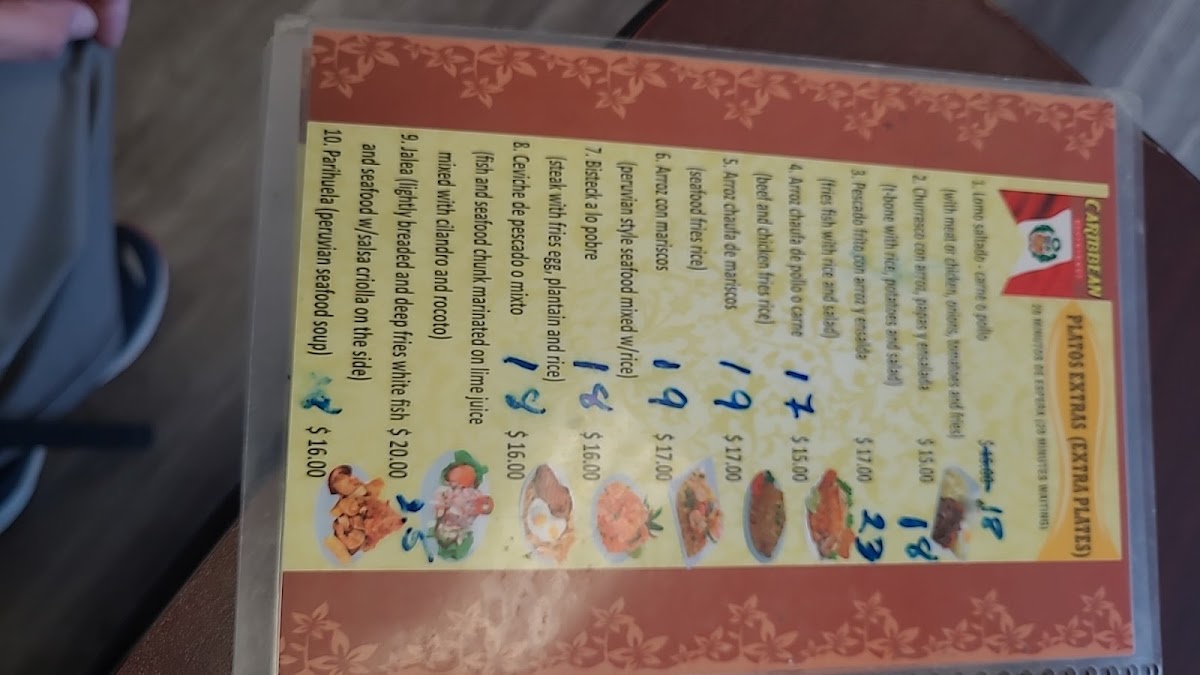 CARIBBEAN
PLATOS EXTRAS (EXTRA PLATES)
20 MINUTOS DE ESPERA (20 MINUTES WAITING)
1. Lomo saltado - carne o pollo
(with meat or chicken, onions, tomatoes and fries) 18
2. Churrasco con arroz, papas y ensalada $ 15.00 18
(t-bone with rice, potatoes and salad)
3. Pescado frito con arroz y ensalda $ 17.00 23
(fries fish with rice and salad)
4. Arroz chaufa de pollo o carne 17 $ 15.00
(beef and chicken fries rice)
5. Arroz chaufa de mariscos 19 $ 17.00
(seafood fries rice)
6. Arroz con mariscos 19 $ 17.00
(peruvian style seafood mixed w/rice)
7. Bisteck a lo pobre 18 $ 16.00
(steak with fries egg, plantain and rice)
8. Ceviche de pescado o mixto 18 $ 16.00
(fish and seafood chunk marinated on lime juice
mixed with cilandro and rocoto)
9. Jalea (lightly breaded and deep fries white fish $ 20.00 25
and seafood w/salsa criolla on the side)
10. Parihuela (peruvian seafood soup) 18 $ 16.00